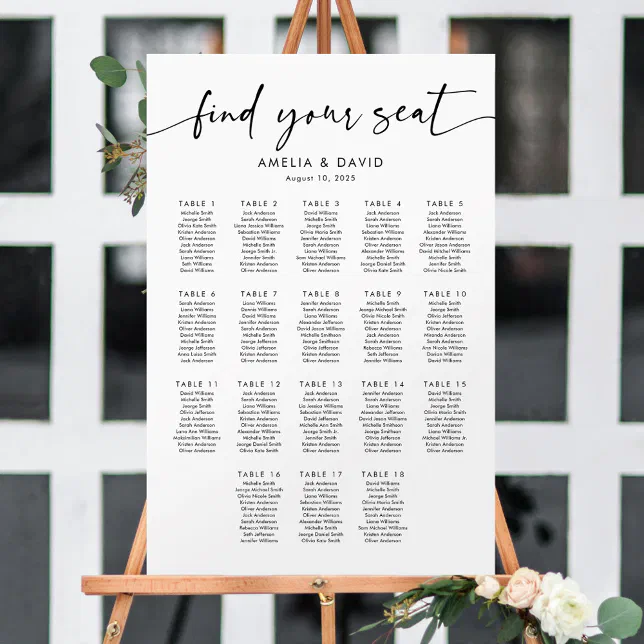 find your seat
AMELIA & DAVID
August 10, 2025
TABLE 1
Michelle Smith
Jearge Smith
Olivia Kate Smith
Kristen Anderson
Oliver Anderson
Jack Anderson
Sarah Anderson
Liana Williams
Seth Williams
David Williams
TABLE 2
Jack Anderson
Sarah Anderson
Liana Jessica Williams
Sebastian Williams
David Williams
Michelle Smith
Jearge Smith Jr.
Jennifer Smith
Kristen Anderson
Oliver Anderson
TABLE 3
David Williams
Michelle Smith
Jearge Smith
Olivia Maria Smith
Jennifer Anderson
Sarah Anderson
Liana Williams
Sam Michael Williams
Kristen Anderson
Oliver Anderson
TABLE 4
Jack Anderson
Sarah Anderson
Liana Williams
Sebastian Williams
Kristen Anderson
Oliver Anderson
David Williams
Michelle Smith
Jearge Daniel Smith
Olivia Kate Smith
TABLE 5
Jack Anderson
Sarah Anderson
Liana Williams
Kristen Anderson
Oliver Jason Anderson
David Mitchel Williams
Jennifer Anderson
Michelle Smith
Jearge Smith
Olivia Nicole Smith
TABLE 6
Sarah Anderson
Liana Williams
Jennifer Williams
Kristen Anderson
Oliver Anderson
David Williams
Michelle Smith
Jearge Jefferson
Anna Luisa Smith
Jack Anderson
TABLE 7
Liana Williams
Dennis Williams
David Williams
Jennifer Smith
Olivia Jefferson
Kristen Anderson
Oliver Anderson
Jack Anderson
Jack Anderson
Sarah Anderson
TABLE 8
Kristen Anderson
Oliver Anderson
Liana Williams
Alexander Jefferson
David Jason Williams
Michelle Smith
Jearge Smith
Olivia Jefferson
Jack Anderson
Sarah Anderson
TABLE 9
Michelle Smith
Jearge Michael Smith
Olivia Nicole Smith
Kristen Anderson
Oliver Anderson
Jack Anderson
Sarah Anderson
Rebecca Williams
Seth Jefferson
Jennifer Williams
TABLE 10
Michelle Smith
Jearge Smith
Olivia Jefferson
Kristen Anderson
Oliver Anderson
Miranda Anderson
Sarah Anderson
Ann Nicole Williams
Darian Williams
David Williams
TABLE 11
David Williams
Michelle Smith
Jearge Smith
Olivia Jefferson
Jack Anderson
Sarah Anderson
Lana Ann Williams
Maksimilian Williams
Kristen Anderson
Oliver Anderson
TABLE 12
Jack Anderson
Sarah Anderson
Liana Williams
Sebastian Williams
Kristen Anderson
Oliver Anderson
Alexander Williams
Michelle Smith
Jearge Daniel Smith
Olivia Kate Smith
TABLE 13
Jack Anderson
Sarah Anderson
Lia Jessica Williams
Sebastian Williams
David Williams
Michelle Ann Smith
Jearge Smith Jr.
Jennifer Smith
Kristen Anderson
Oliver Anderson
TABLE 14
Jack Anderson
Sarah Anderson
Liana Williams
Alexander Jefferson
David Jason Williams
Michelle Smithson
Jearge Smithson
Olivia Smith
Kristen Anderson
Oliver Anderson
TABLE 15
Michelle Smith
Jearge Smith
Olivia Maria Smith
Jennifer Anderson
Sarah Anderson
Liana Williams
Michael Williams Jr.
Kristen Anderson
Oliver Anderson
David Williams
TABLE 16
Michelle Smith
Jearge Michael Smith
Olivia Nicole Smith
Kristen Anderson
Oliver Anderson
Jack Anderson
Sarah Anderson
Rebecca Williams
Seth Jefferson
Jennifer Williams
TABLE 17
Jack Anderson
Sarah Anderson
Liana Williams
Sebastian Williams
Kristen Anderson
Oliver Anderson
Alexander Williams
Michelle Smith
Jearge Daniel Smith
Olivia Kate Smith
TABLE 18
David Williams
Michelle Smith
Jearge Smith
Olivia Smith
Jennifer Anderson
Sarah Anderson
Liana Williams
Sam Michael Williams
Kristen Anderson
Oliver Anderson